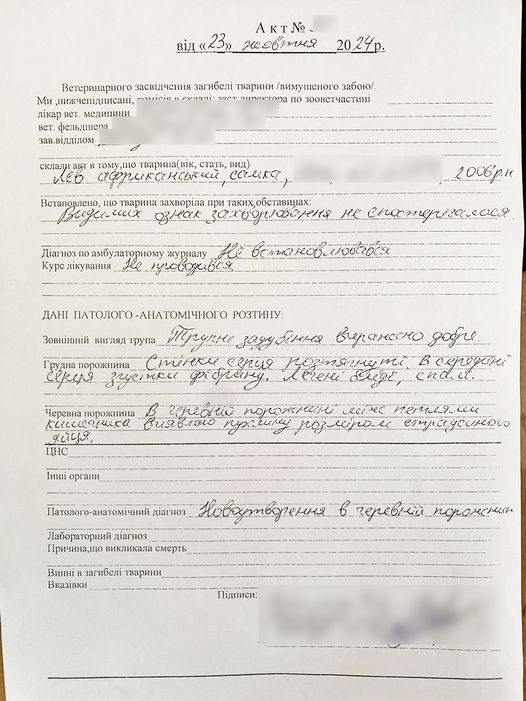 Акт №
від «23» жовтня 2024 р.
Ветеринарного засвідчення загибелі тварини /вимушеного забою/.
Ми ,нижчепідписані, комісія в складі: заст.директора по зооветчастині
лікар вет. медицини
вет. фельдшера
зав.відділом
склали акт в тому,що тварина(вік, стать, вид)
Лев африканський, самка, 2006 р.н
Встановлено, що тварина захворіла при таких обставинах:
Видимих ознак захворювання не спостерігалося.
Діагноз по амбулаторному журналу Не встановлювався
Курс лікування Не проводився
ДАНІ ПАТОЛОГО-АНАТОМІЧНОГО РОЗТИНУ:
Зовнішній вигляд трупа Трупне задубіння виражено добре
Грудна порожнина Стінки серця розтягнуті. В середині
серця згустки фібрину. Легені бліді, спалі.
Черевна порожнина В черевній порожнині між петлями
кишечника виявлено пухлину розміром страусиного
яйця.
ЦНС
Інші органи
Патолого-анатомічний діагноз Новоутворення в черевній порожнині
Лабораторний діагноз
Причина,що викликала смерть
Винні в загибелі тварини
Вказівки
Підписи: